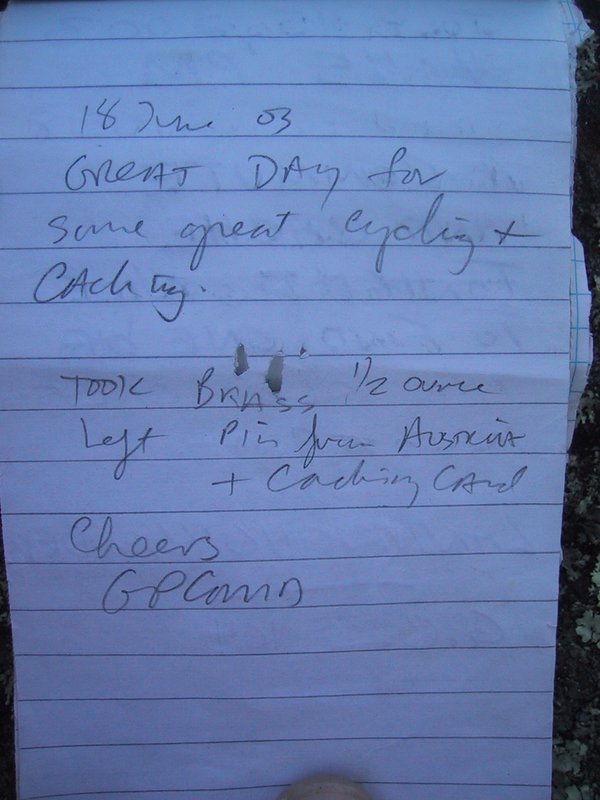 18 June 03
GREAT DAy for
some great cycling +
CAching.
TOOK BRASS 1/2 ounce
Left Pin from AUSTRIA
+ Caching CArd
Cheers